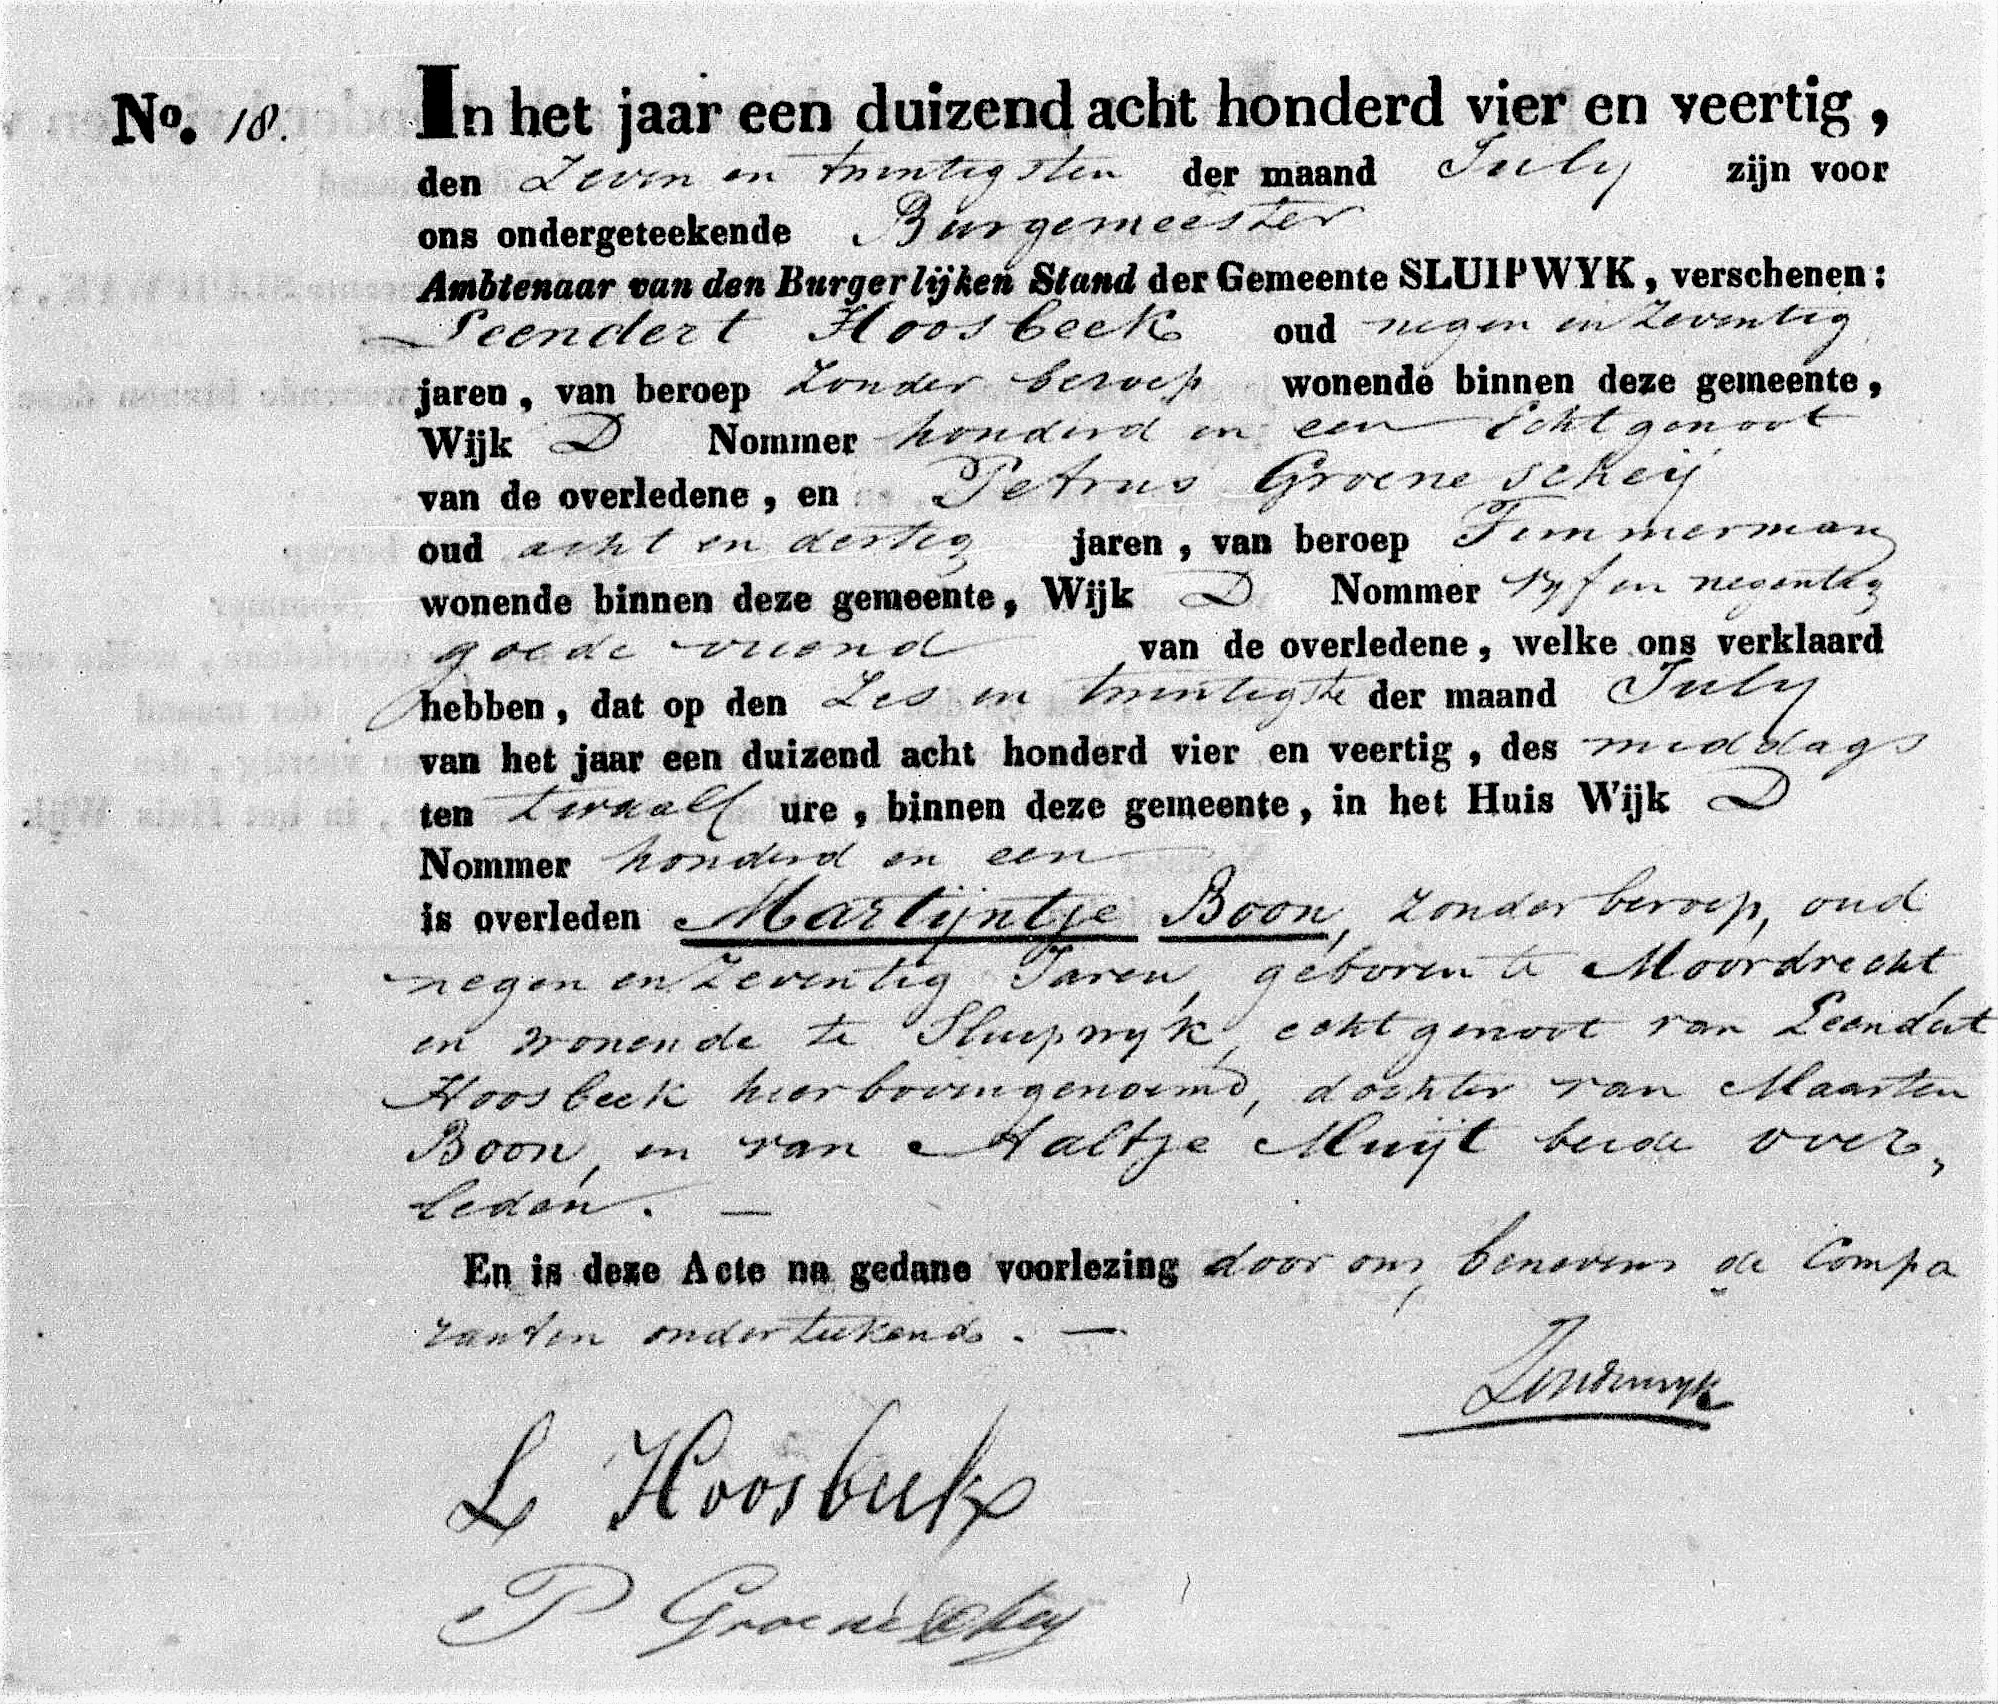 No. 18.
In het jaar een duizend acht honderd vier en veertig,
den Zeven en twintigsten der maand July zijn voor
ons ondergeteekende Burgemeester
Ambtenaar van den Burgerlijken Stand der Gemeente SLUIPWYK, verschenen:
Leendert Hoosbeek oud negen en Zeventig
jaren, van beroep Zonder beroep wonende binnen deze gemeente,
Wijk D Nommer honderd en een Echtgenoot
van de overledene, en Petrus Groenescheij
oud acht en dertig jaren, van beroep Timmerman
wonende binnen deze gemeente, Wijk D Nommer vyf en negentig
goede vriend van de overledene, welke ons verklaard
hebben, dat op den Zes en twintigste der maand July
van het jaar een duizend acht honderd vier en veertig, des middags
ten twaalf ure, binnen deze gemeente, in het Huis Wijk D
Nommer honderd en een
is overleden Martijntje Boon, zonder beroep, oud
negen en Zeventig Jaren, geboren te Moordrecht
en wonende te Sluipwyk, echtgenoot van Leendert
Hoosbeek hierbovengenoemd, dochter van Maarten
Boon, en van Aaltje Muijt beide over,
leden. —
En is deze Acte na gedane voorlezing door ons, benevens de Compa
ranten onderteekend. —
L Hoosbeek
P Groenescheij